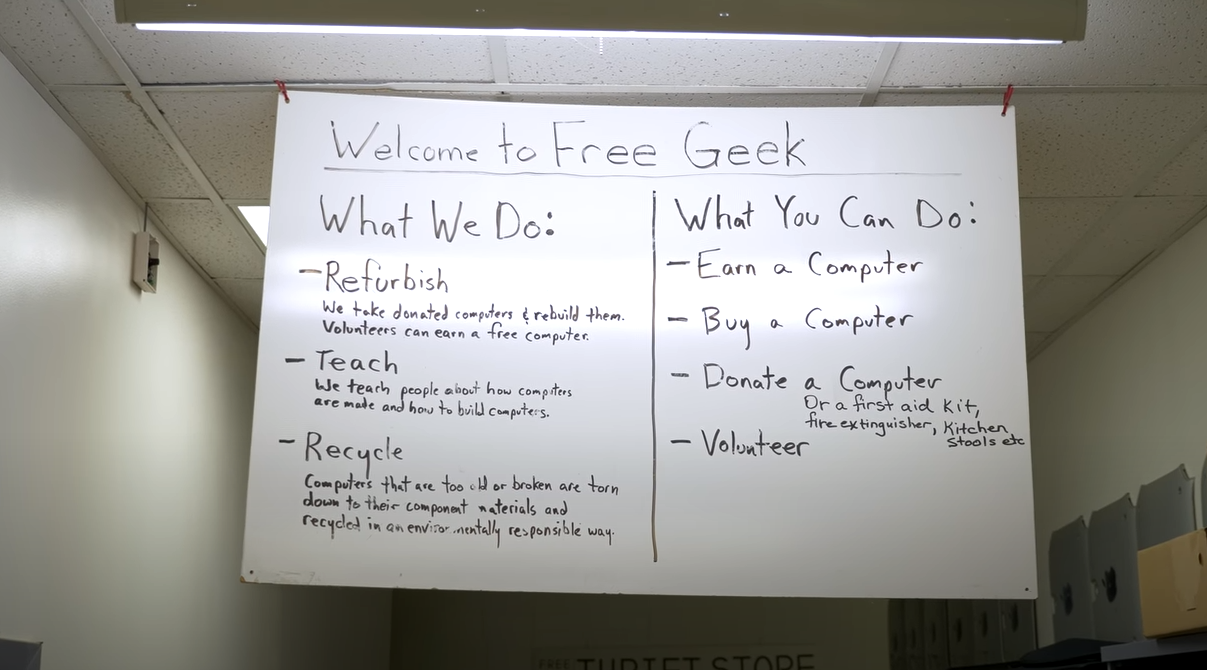 Welcome to Free Geek
What We Do:
- Refurbish
We take donated computers & rebuild them.
Volunteers can earn a free computer.
- Teach
We teach people about how computers
are made and how to build computers.
- Recycle
Computers that are too old or broken are torn
down to their component materials and
recycled in an environmentally responsible way.
What You Can Do:
- Earn a Computer
- Buy a Computer
- Donate a Computer
Or a first aid Kit,
fire extinguisher, Kitchen
Stools etc
- Volunteer
FREE THRIFT STORE